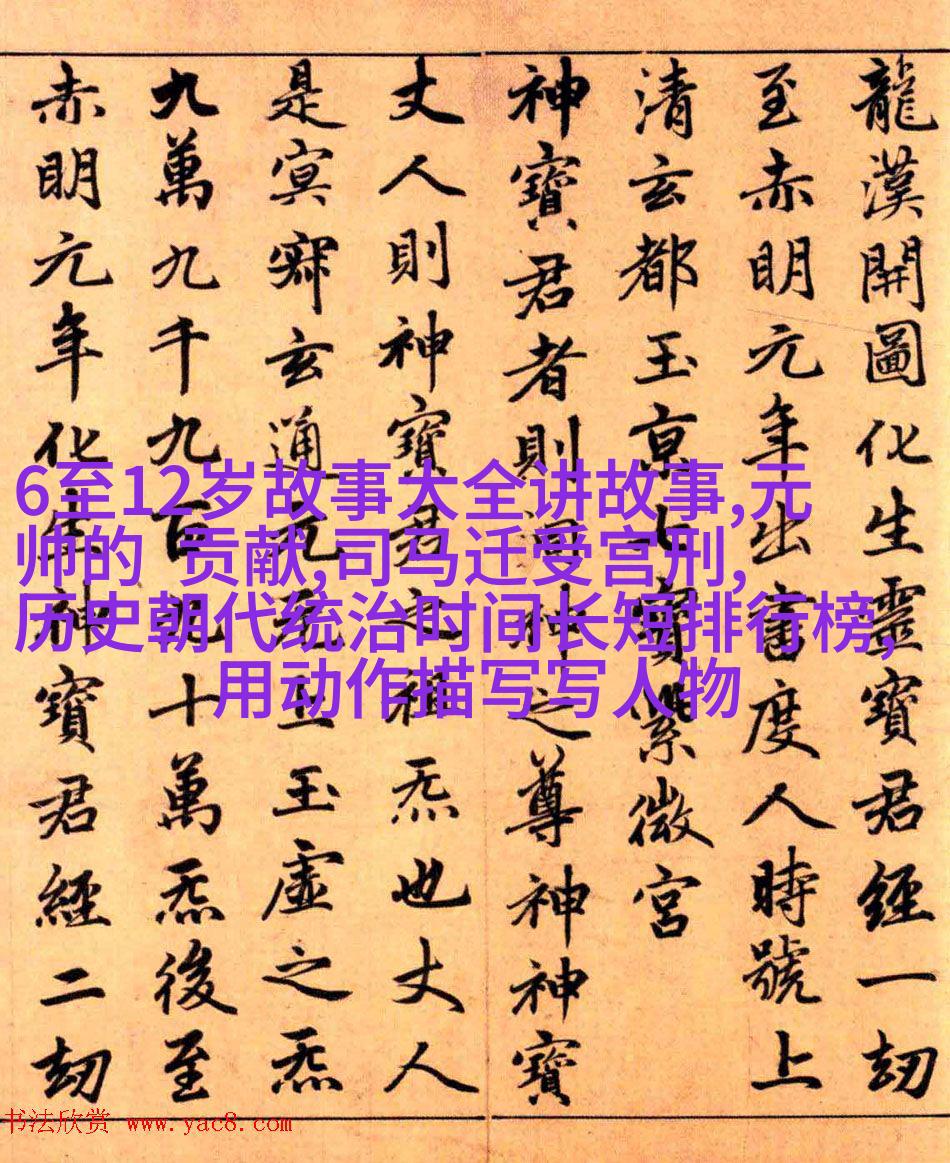 龍漢開圖化生靈寶君經一劫
至赤明元年出書度人時號上
清玄都玉京七寶紫微宮
神寶君者則洞神之尊神神寶
丈人則神寶君之祖炁也丈人
是冥寂玄通元無上玉虛之炁
九萬九千九百九十萬炁後至
赤明元年化生神寶君經二劫
6至12岁故事大全讲故事,元
帅的 贡献,司马迁受宫刑,
历史朝代统治时间长短排行榜,
用动作描写写人物
书法欣赏 www.yac8.com